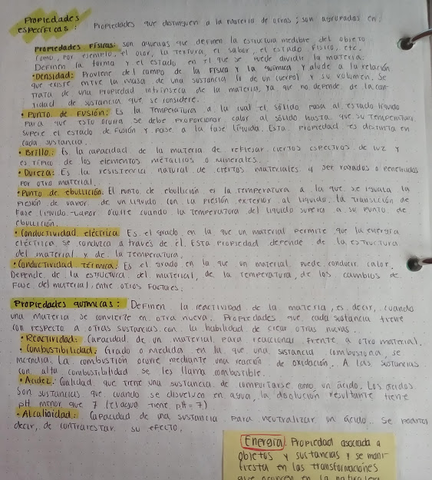 Propiedades
específicas: Propiedades que distinguen a la materia de otras; son agrupadas en
Propiedades Físicas: son aquellas que definen la estructura medible del objeto
como, por ejemplo, el olor, la textura, el sabor, el estado físico, etc.
Definen la forma y el estado en el que se puede dividir la materia.
• Densidad: Proviene del campo de la física y la química y alude a la relación
que existe entre la masa de una sustancia (o de un cuerpo) y su volumen. Se
trata de una propiedad intrínseca de la materia, ya que no depende de la can-
tidad de sustancia que se considere.
• Punto de fusión: Es la temperatura a la cual el sólido pasa al estado líquido
Para que esto ocurra se debe proporcionar calor al sólido hasta que su temperatura
supere el estado de fusión y pase a la fase líquida. Esta propiedad es distinta en
cada sustancia.
• Brillo: Es la capacidad de la materia de reflejar ciertos espectros de luz y
es típico de los elementos metálicos o minerales.
• Dureza: Es la resistencia natural de ciertos materiales a ser rayados o
por otro material.
• Punto de ebullición: El punto de ebullición es la temperatura a la que se iguala la
presión de vapor de un líquido con la presión exterior al líquido. la transición de
fase líquido-vapor ocurre cuando la temperatura del líquido supera a su punto de
ebullición.
• Conductividad eléctrica: Es el grado en la que un material permite que la energía
eléctrica se conduzca a través de él. Esta propiedad depende de la estructura
del material y de la temperatura.
• Conductividad térmica: Es el grado en la que un material puede conducir calor.
Depende de la estructura del material, de la temperatura, de los cambios de
fase del material, entre otros factores.
Propiedades químicas: Definen la reactividad de la materia, es decir, cuando
una materia se convierte en otra nueva. Propiedades que cada sustancia tiene
con respecto a otras sustancias con la habilidad de crear otras nuevas.
• Reactividad: Capacidad de un material para reaccionar frente a otro material.
• Combustibilidad: Grado o medida en la que una sustancia combustiona, se
incendia. La combustión ocurre mediante una reacción de oxidación. A las sustancias
con alta combustibilidad se les llama combustible.
• Acidez: Cualidad que tiene una sustancia de comportarse como un ácido. Los ácidos
son sustancias que cuando se disuelven en agua, la disolución resultante tiene
pH menor que 7 (el agua tiene pH = 7)
• Alcalinidad: Capacidad de una sustancia para neutralizar un ácido. Se
decir, de contrarrestar su efecto.
Energía: Propiedad asociada a
objetos y sustancias y se mani-
fiesta en las transformaciones
que ocurren en la naturaleza